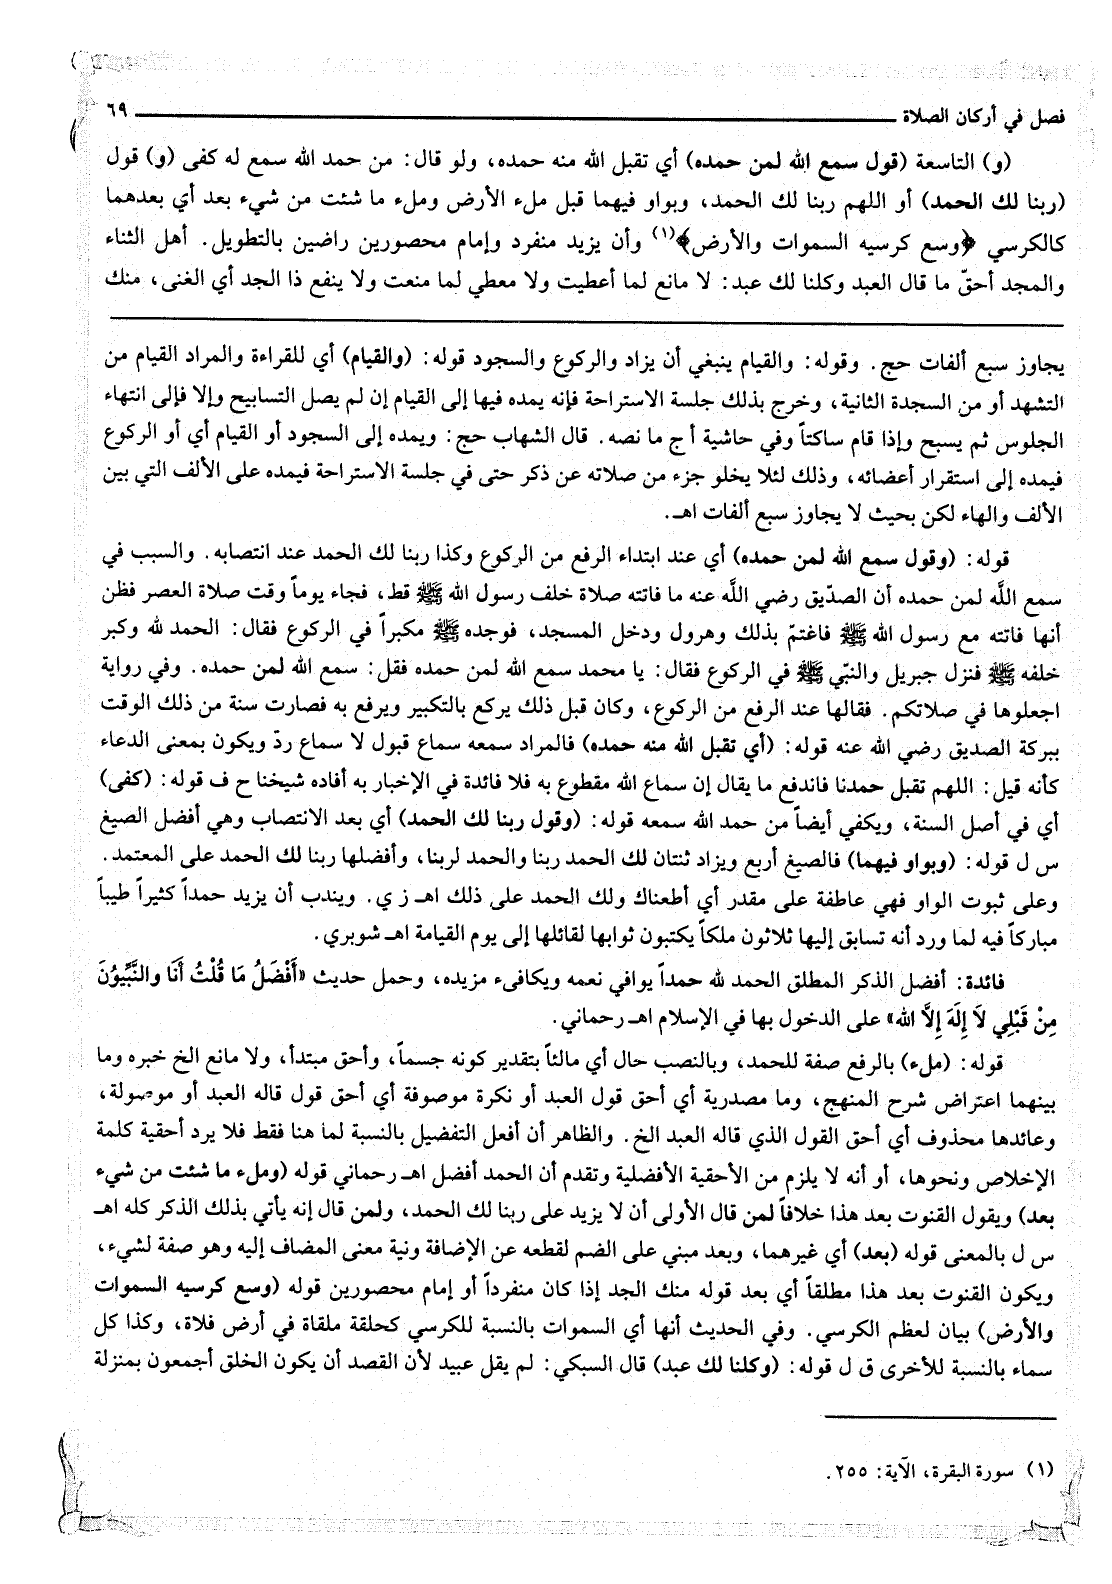 فصل في أركان الصلاة ٦٩
(و) التاسعة (قول سمع الله لمن حمده) أي تقبل الله منه حمده، ولو قال: من حمد الله سمع له كفى (و) قول
(ربنا لك الحمد) أو اللهم ربنا لك الحمد، وبواو فيهما قبل ملء الأرض وملء ما شئت من شيء بعد أي بعدهما
كالكرسي ﴿وسع كرسيه السموات والأرض﴾(١) وأن يزيد منفرد وإمام محصورين راضين بالتطويل. أهل الثناء
والمجد أحقّ ما قال العبد وكلنا لك عبد: لا مانع لما أعطيت ولا معطي لما منعت ولا ينفع ذا الجد أي الغنى، منك
يجاوز سبع ألفات حج. وقوله: والقيام ينبغي أن يزاد والركوع والسجود قوله: (والقيام) أي للقراءة والمراد القيام من
التشهد أو من السجدة الثانية، وخرج بذلك جلسة الاستراحة فإنه يمده فيها إلى القيام إن لم يصل التسابيح وإلا فإلى انتهاء
الجلوس ثم يسبح وإذا قام ساكتاً وفي حاشية أ ج ما نصه. قال الشهاب حج: ويمده إلى السجود أو القيام أي أو الركوع
فيمده إلى استقرار أعضائه، وذلك لئلا يخلو جزء من صلاته عن ذكر حتى في جلسة الاستراحة فيمده على الألف التي بين
الألف والهاء لكن بحيث لا يجاوز سبع ألفات اهـ.
قوله: (وقول سمع الله لمن حمده) أي عند ابتداء الرفع من الركوع وكذا ربنا لك الحمد عند انتصابه. والسبب في
سمع اللَّه لمن حمده أن الصدّيق رضي اللَّه عنه ما فاتته صلاة خلف رسول الله ﷺ قط، فجاء يوماً وقت صلاة العصر فظن
أنها فاتته مع رسول الله ﷺ فاغتمّ بذلك وهرول ودخل المسجد، فوجده ﷺ مكبراً في الركوع فقال: الحمد لله وكبر
خلفه ﷺ فنزل جبريل والنبّي ﷺ في الركوع فقال: يا محمد سمع الله لمن حمده فقل: سمع الله لمن حمده. وفي رواية
اجعلوها في صلاتكم. فقالها عند الرفع من الركوع، وكان قبل ذلك يركع بالتكبير ويرفع به فصارت سنة من ذلك الوقت
ببركة الصديق رضي الله عنه قوله: (أي تقبل الله منه حمده) فالمراد سمعه سماع قبول لا سماع ردّ ويكون بمعنى الدعاء
كأنه قيل: اللهم تقبل حمدنا فاندفع ما يقال إن سماع الله مقطوع به فلا فائدة في الإخبار به أفاده شيخنا ح ف قوله: (كفى)
أي في أصل السنة، ويكفي أيضاً من حمد الله سمعه قوله: (وقول ربنا لك الحمد) أي بعد الانتصاب وهي أفضل الصيغ
س ل قوله: (وبواو فيهما) فالصيغ أربع ويزاد ثنتان لك الحمد ربنا والحمد لربنا، وأفضلها ربنا لك الحمد على المعتمد.
وعلى ثبوت الواو فهي عاطفة على مقدر أي أطعناك ولك الحمد على ذلك اهـ ز ي. ويندب أن يزيد حمداً كثيراً طيباً
مباركاً فيه لما ورد أنه تسابق إليها ثلاثون ملكاً يكتبون ثوابها لقائلها إلى يوم القيامة اهـ شوبري.
فائدة: أفضل الذكر المطلق الحمد لله حمداً يوافي نعمه ويكافىء مزيده، وحمل حديث «أَفْضَلُ مَا قُلْتُ أَنَا والنَّبِيُّونَ
مِنْ قَبْلِي لاَ إِلَهَ إِلاَّ الله» على الدخول بها في الإسلام اهـ رحماني.
قوله: (ملء) بالرفع صفة للحمد، وبالنصب حال أي مالئاً بتقدير كونه جسماً، وأحق مبتدأ، ولا مانع الخ خبره وما
بينهما اعتراض شرح المنهج، وما مصدرية أي أحق قول العبد أو نكرة موصوفة أي أحق قول قاله العبد أو موصولة،
وعائدها محذوف أي أحق القول الذي قاله العبد الخ. والظاهر أن أفعل التفضيل بالنسبة لما هنا فقط فلا يرد أحقية كلمة
الإخلاص ونحوها، أو أنه لا يلزم من الأحقية الأفضلية وتقدم أن الحمد أفضل اهـ رحماني قوله (وملء ما شئت من شيء
بعد) ويقول القنوت بعد هذا خلافاً لمن قال الأولى أن لا يزيد على ربنا لك الحمد، ولمن قال إنه يأتي بذلك الذكر كله اهـ
س ل بالمعنى قوله (بعد) أي غيرهما، وبعد مبني على الضم لقطعه عن الإضافة ونية معنى المضاف إليه وهو صفة لشيء،
ويكون القنوت بعد هذا مطلقاً أي بعد قوله منك الجد إذا كان منفرداً أو إمام محصورين قوله (وسع كرسيه السموات
والأرض) بيان لعظم الكرسي. وفي الحديث أنها أي السموات بالنسبة للكرسي كحلقة ملقاة في أرض فلاة، وكذا كل
سماء بالنسبة للأخرى ق ل قوله: (وكلنا لك عبد) قال السبكي: لم يقل عبيد لأن القصد أن يكون الخلق أجمعون بمنزلة
(١) سورة البقرة، الآية: ٢٥٥.